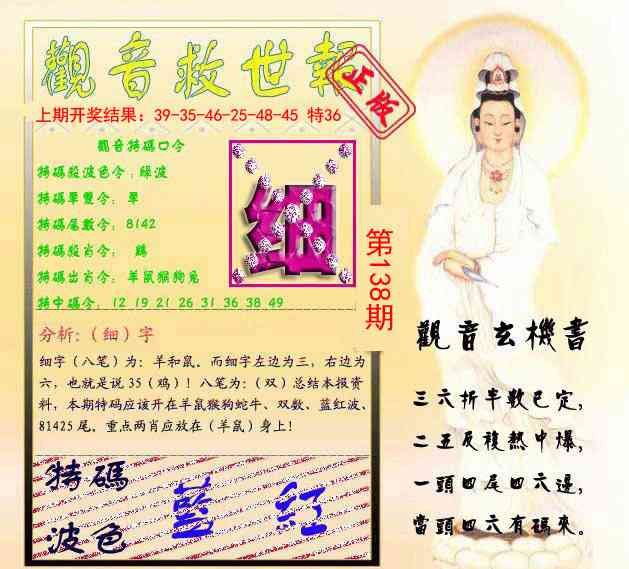 觀音救世報
正版
上期开奖结果：39-35-46-25-48-45 特36
觀音特碼口令
特碼殺波色令：綠波
特碼單雙令： 單
特碼尾數令： 8142
特碼殺肖令： 鷄
特碼出肖令：羊鼠猴狗兔
特中碼令： 12 19 21 26 31 36 38 49
细
第138期
分析:（细）字
细字（八笔）为：羊和鼠。而细字左边为三，右边为
六，也就是说 35（鸡）！八笔为:（双）总结本报资
料，本期特码应该开在羊鼠猴狗蛇牛、双数、蓝红波、
81425 尾。重点两肖应放在（羊鼠）身上！
特碼
波色
藍 紅
觀音玄機書
三六折半數已定，
二五反複熱中爆，
一頭四尾四六邊，
當頭四六有碼來。